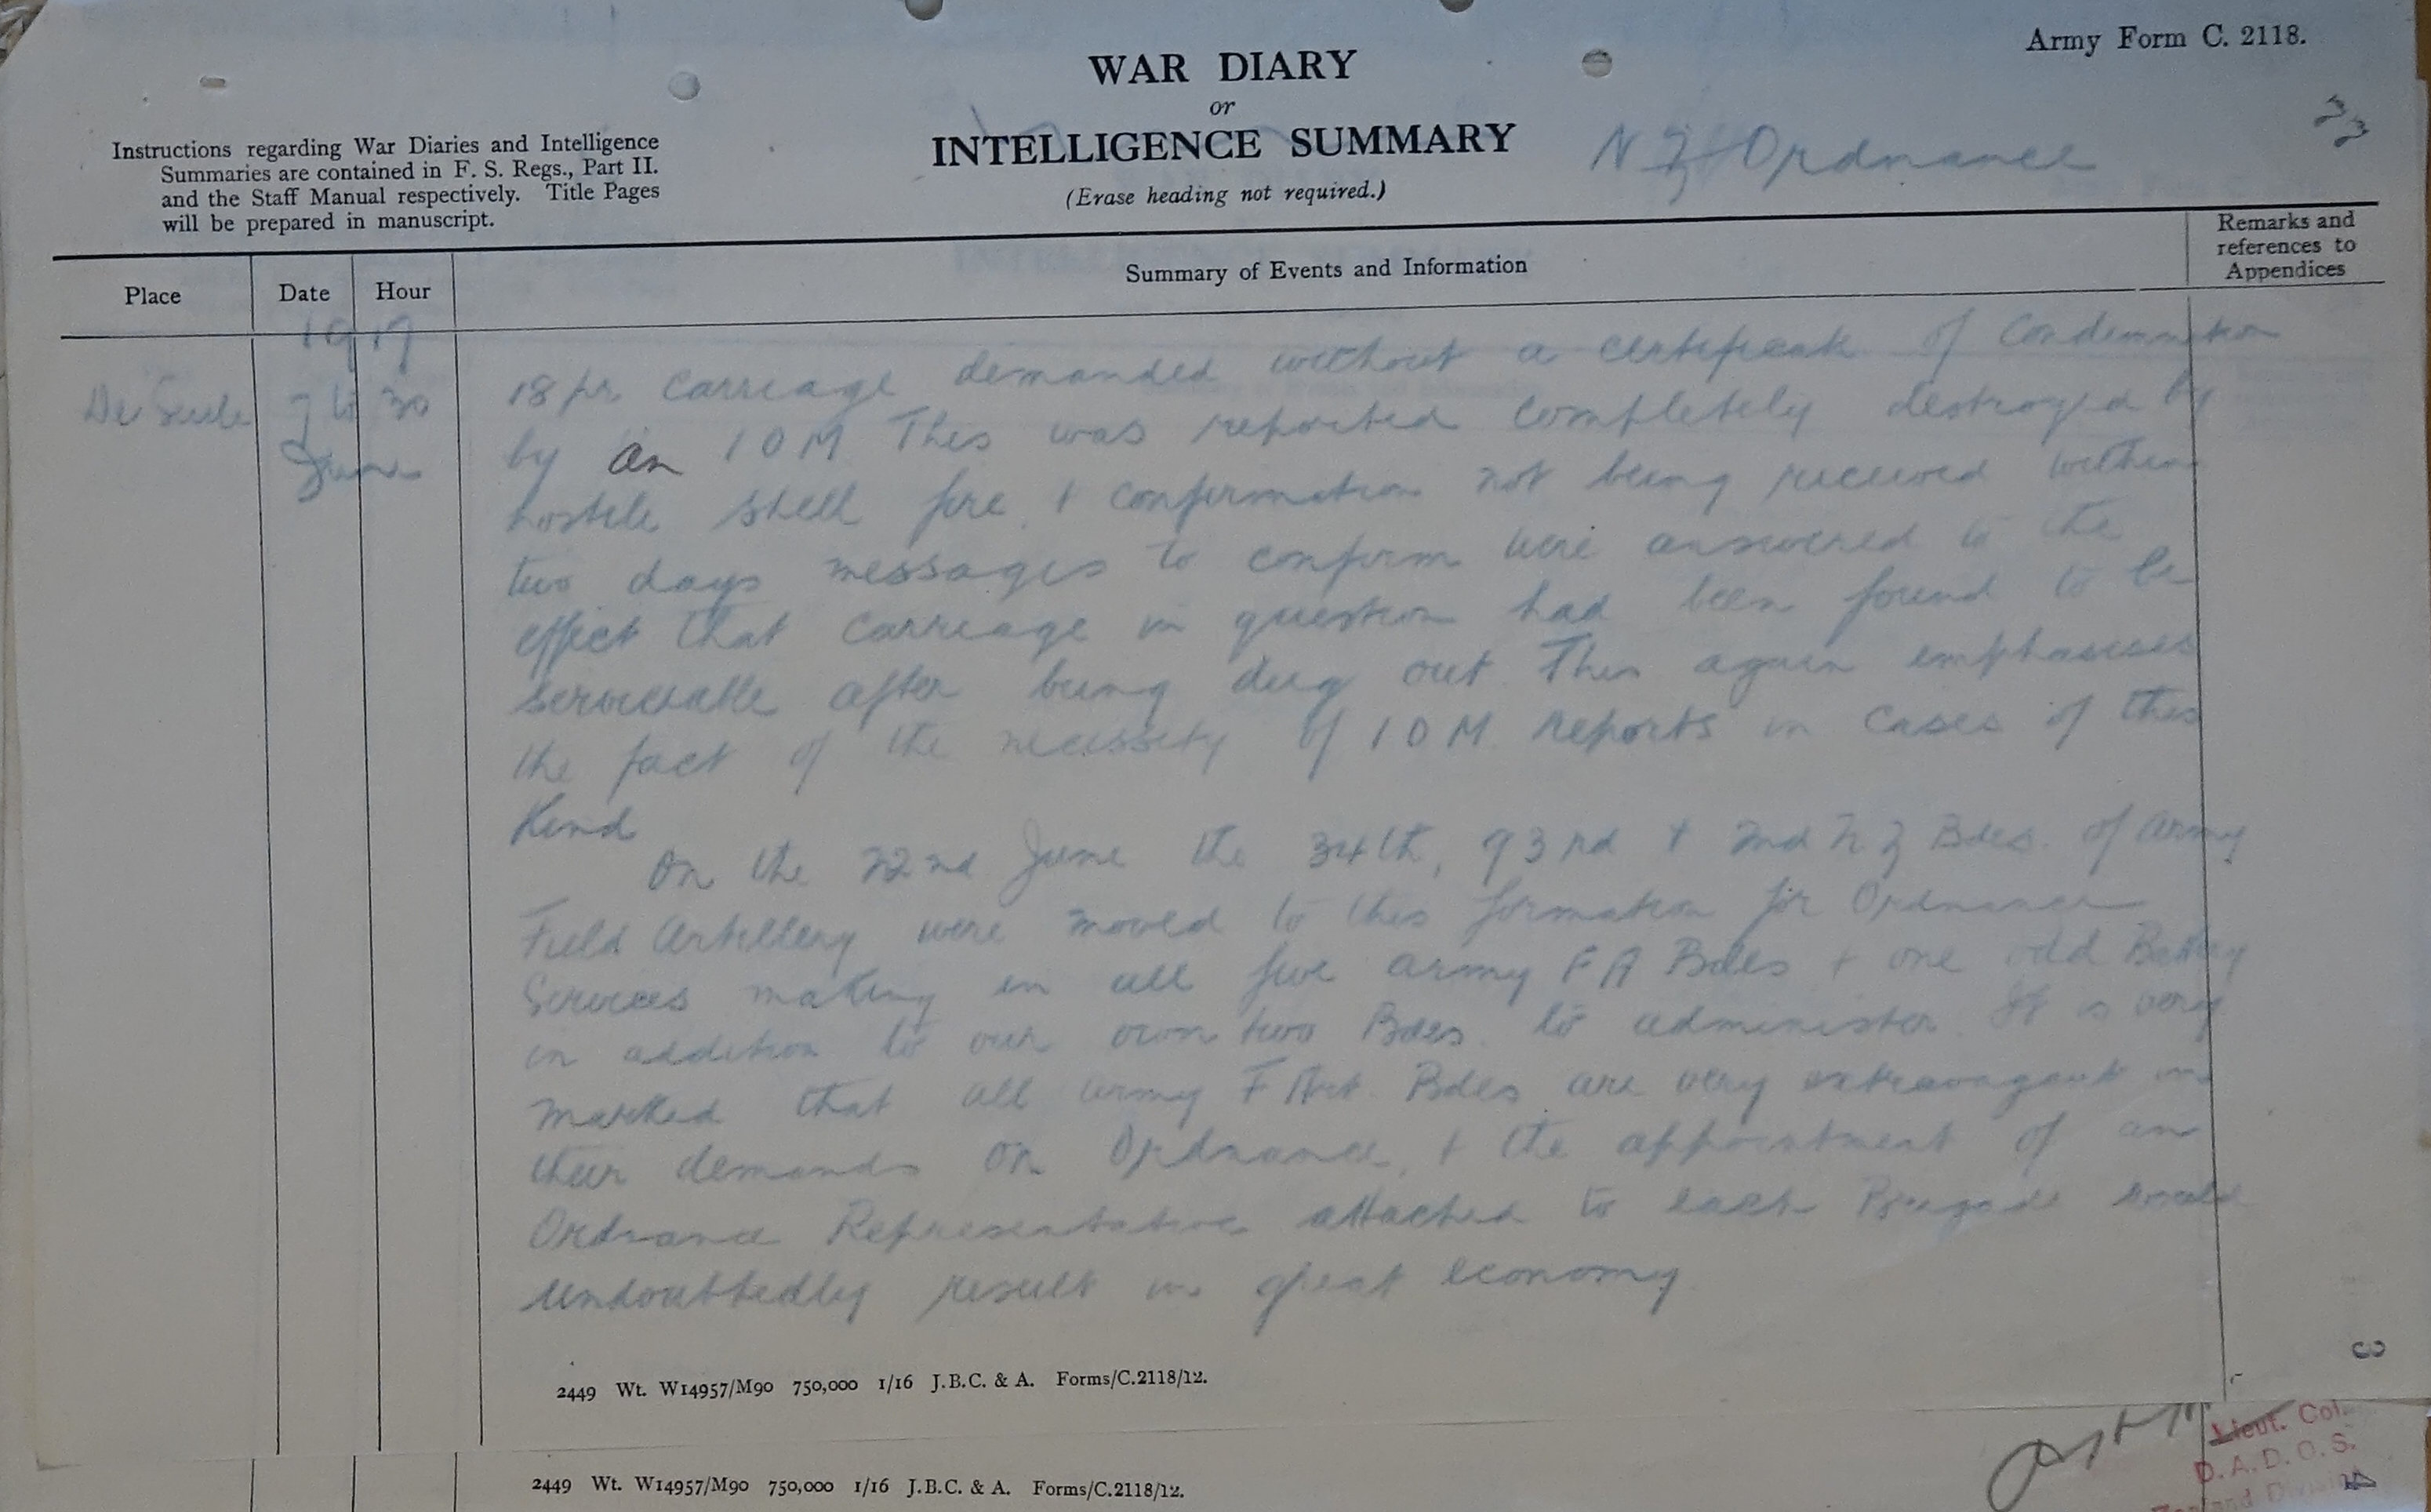 Army Form C. 2118.
WAR DIARY
or
INTELLIGENCE SUMMARY
(Erase heading not required.)
N Z Ordnance
Instructions regarding War Diaries and Intelligence
Summaries are contained in F. S. Regs., Part II.
and the Staff Manual respectively. Title Pages
will be prepared in manuscript.
Place
Date
Hour
Summary of Events and Information
Remarks and
references to
Appendices
1917
De Seule
7 to 30
June
18 pr carriage demanded without a certificate of Condemnation
by an IOM This was reported completely destroyed by
hostile shell fire, + confirmation not being received within
two days messages to confirm were answered to the
effect that carriage in question had been found to be
serviceable after being dug out. This again emphasises
the fact of the necessity of IOM reports in cases of this
Kind
On the 22nd June the 34th, 93rd + 2nd N Z Bdes. of Army
Field Artillery were moved to this formation for Ordnance
Services making in all five army F A Bdes + one odd Battery
in addition to our own two Bdes. to administer. It is very
marked that all army F Art. Bdes are very extravagant in
their demands on Ordnance, + the appointment of an
Ordnance Representative attached to each Brigade would
undoubtedly result in great economy.
3
2449 Wt. W14957/M90 750,000 1/16 J.B.C. & A. Forms/C.2118/12.
Lieut. Col.
D.A.D.O.S.
4
2449 Wt. W14957/M90 750,000 1/16 J.B.C. & A. Forms/C.2118/12.